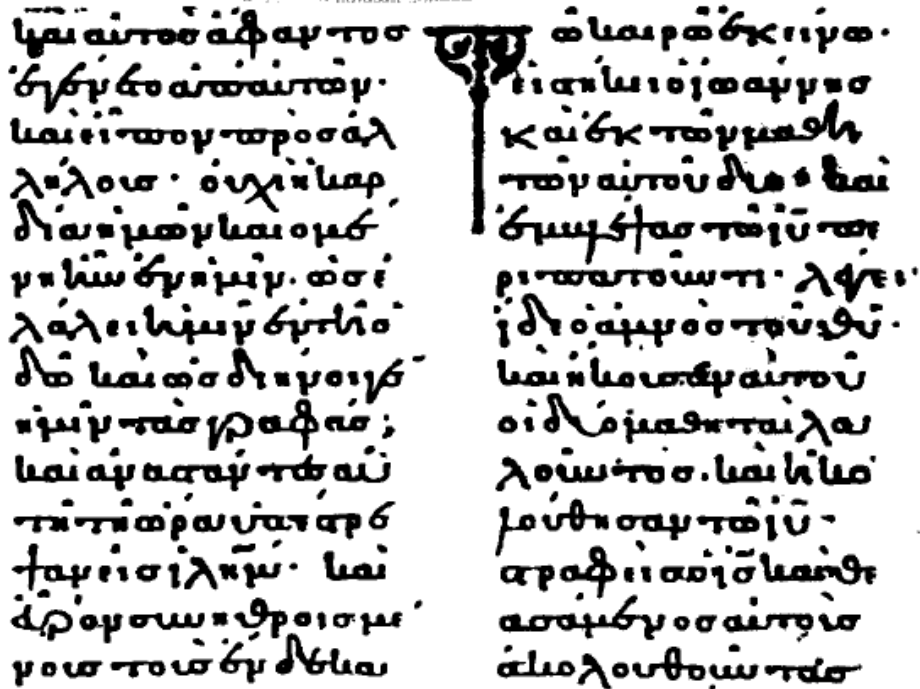 καὶ αὐτὸς ἄφαντος
ἐγένετο ἀπ αὐτῶν·
καὶ εἶπον πρὸς ἀλ
λήλους· οὐχὶ ἡ καρ
δία ἡμῶν καιομέ
νη ἦν ἐν ἡμῖν· ὡς ἐ
λάλει ἡμῖν ἐν τῆ ὁ
δῶ καὶ ὡς διήνοιγε
ἡμῖν τὰς γραφάς;
καὶ ἀναστάντες αὐ
τῆ τῆ ὥρα ὑπέστρε
ψαν εἰς ἰλῆμ· καὶ
εὗρον συνηθροισμέ
νους τοὺς ἕνδεκα
Τῶ καιρῶ ἐκείνω·
εἱστήκει ὁ ἰωάννης
καὶ ἐκ τῶν μαθη
τῶν αὐτοῦ δύο· καὶ
ἐμβλέψας τῶ ἰῦ πε
ριπατοῦντι· λέγει·
ἴδε ὁ ἀμνὸς τοῦ θῦ·
καὶ ἤκουσαν αὐτοῦ
οἱ δύο μαθηταὶ λα
λοῦντος· καὶ ἠκο
λούθησαν τῶ ἰῦ·
στραφεὶς ὁ ἰς καὶ θε
ασάμενος αὐτοὺς
ἀκολουθοῦντας